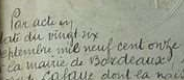 Par acte en
date du vingt six
septembre mil neuf cent onze
la mairie de Bordeaux
Lafaye dont la